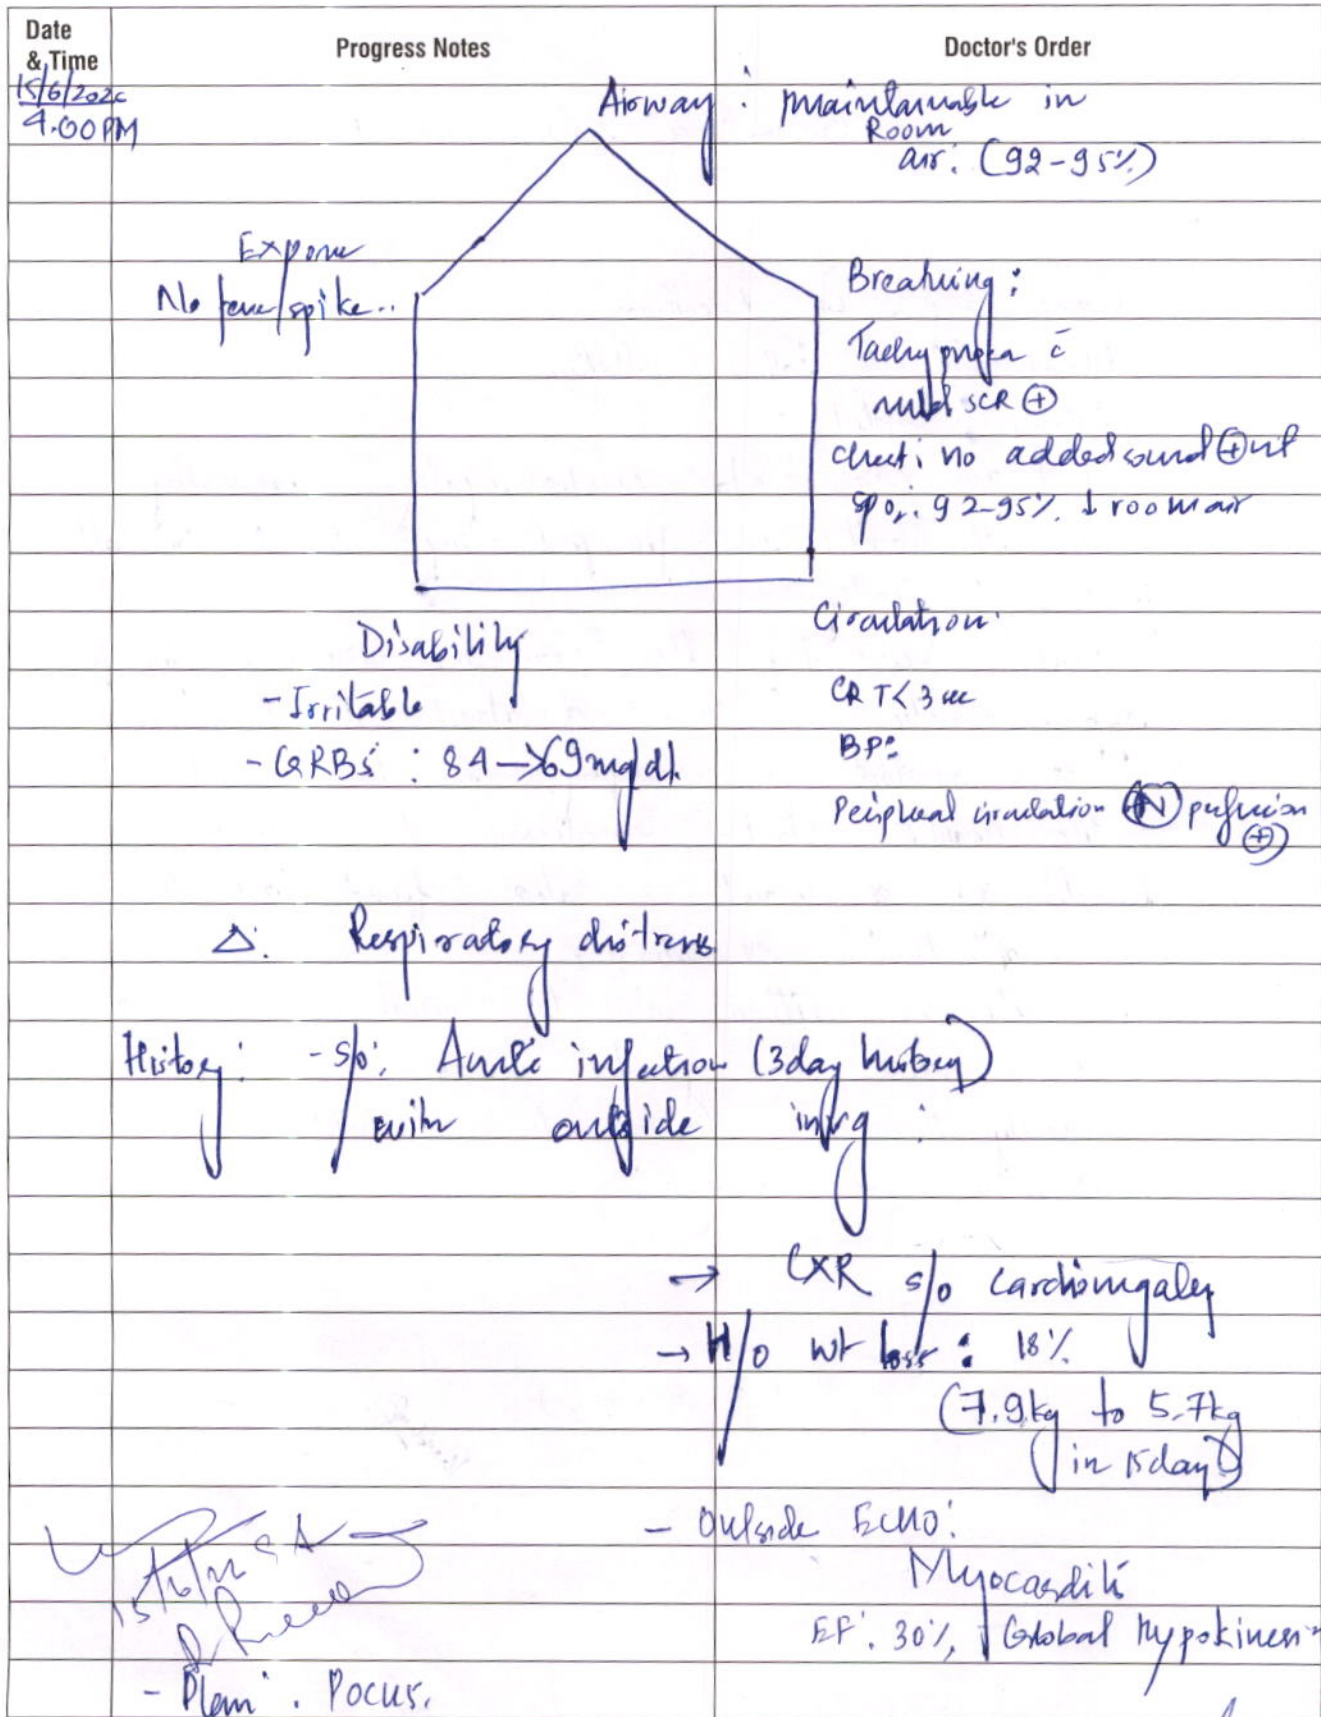 Date & Time
Progress Notes
Doctor's Order
15/6/202
4.00PM
Airway : Maintainable in
Room
air. (92-95%)
Expose
No fever/spike..
Breathing :
Tachypnoea c̄
mild SCR ⊕
chest: no added sound ⊕nt
SpO₂: 92-95% ↓ room air
Circulation:
CRT < 3 sec
BP:
Peripheral circulation Ⓝ perfusion ⊕
Disability
- Irritable
- GRBS : 84 → 69 mg/dl
Δ: Respiratory distress
History: - s/o: Acute infection (3 day history)
with outside
→ CXR s/o cardiomegaly
→ H/o wt loss : 18%
(7.9kg to 5.7kg
in 15 day)
- Outside ECHO:
Myocarditis
EF: 30%, Global Hypokinesia
- Plan : POCUS.